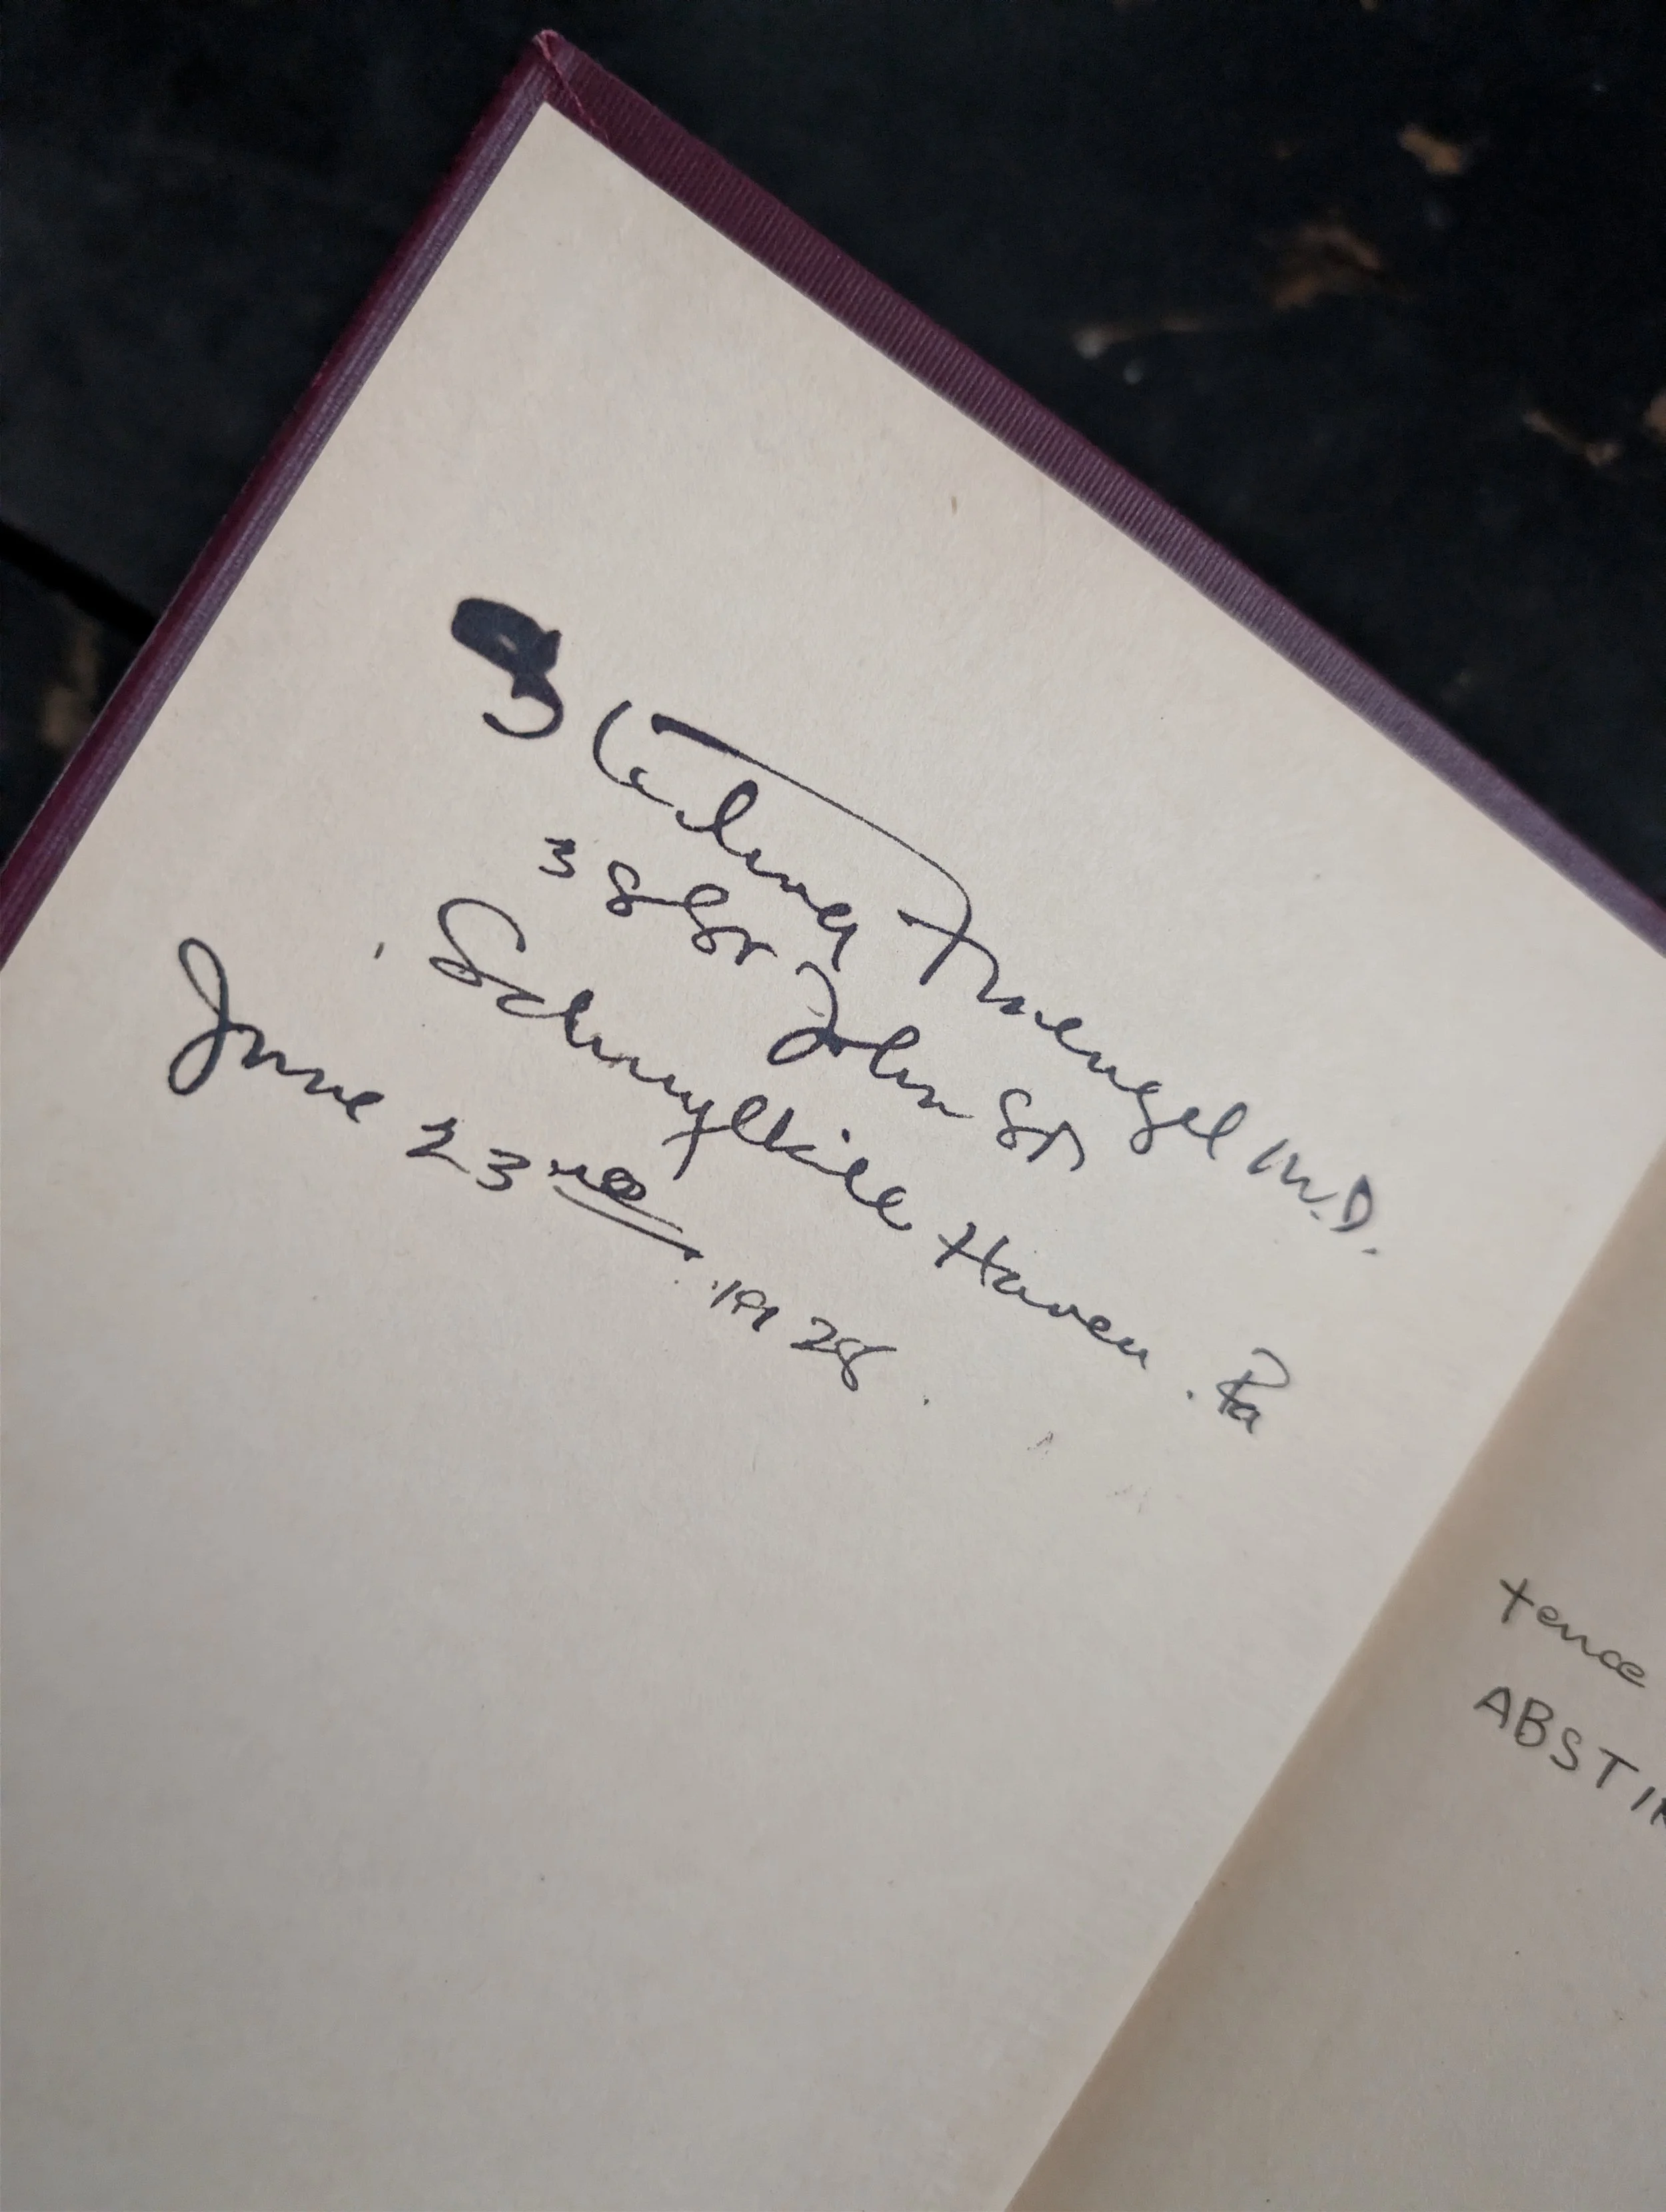 Fruengel M.D.
38 St John St
Schuylkill Haven. Pa
June 23rd 1928.
tence
ABSTIN